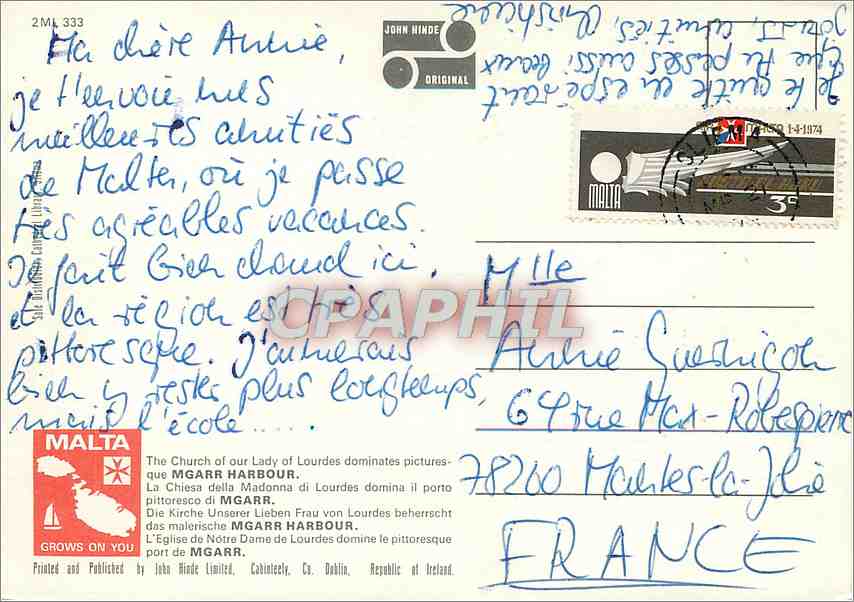 2ML 333
Ma chère Annie,
je t'envoie mes
meilleures amitiés
de Malte, où je passe
très agréables vacances.
Il fait bien chaud ici,
et la région est très
pittoresque. J'aimerais
bien y rester plus longtemps,
mais l'école......
Je te quitte en espérant
que tu passes aussi beaux
jours, amitiés, Christiane
JOHN HINDE
ORIGINAL
1-4-1974
MALTA
3c
Sole Distributors Cathedral Library
CPAPHIL
Mlle
Annie
64 rue Max-Robespierre
78200 Mantes-la-Jolie
FRANCE
MALTA
GROWS ON YOU
The Church of our Lady of Lourdes dominates pictures-
que MGARR HARBOUR.
La Chiesa della Madonna di Lourdes domina il porto
pittoresco di MGARR.
Die Kirche Unserer Lieben Frau von Lourdes beherrscht
das malerische MGARR HARBOUR.
L'Eglise de Nôtre Dame de Lourdes domine le pittoresque
port de MGARR.
Printed and Published by John Hinde Limited, Cabinteely, Co. Dublin, Republic of Ireland.